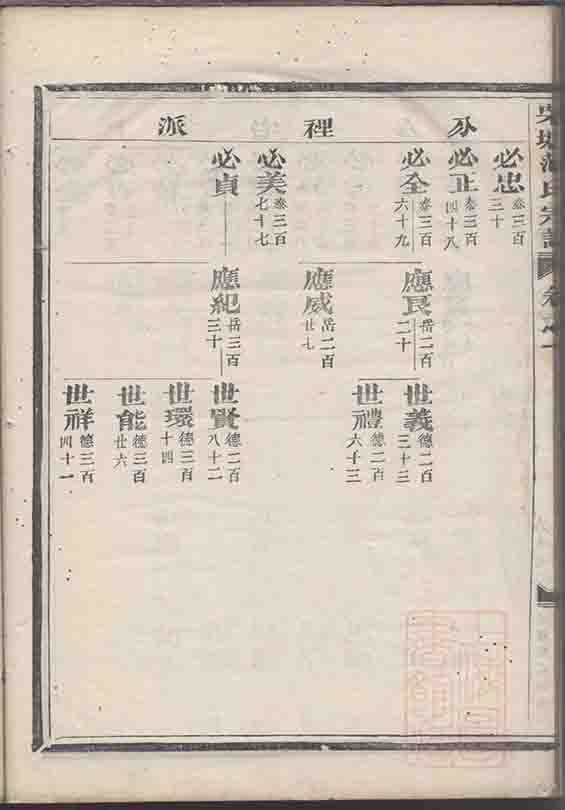 氏宗譜 卷之一
分裡派
必忠 泰三百三十
必正 泰三百四十八
必全 泰三百六十九
必美 泰三百七十七
必貞
應良 岳二百二十
應威 岳二百廿七
應紀 岳三百三十
世義 德二百三十三
世禮 德二百六十三
世賢 德二百八十二
世環 德三百十四
世能 德三百廿六
世祥 德三百四十一